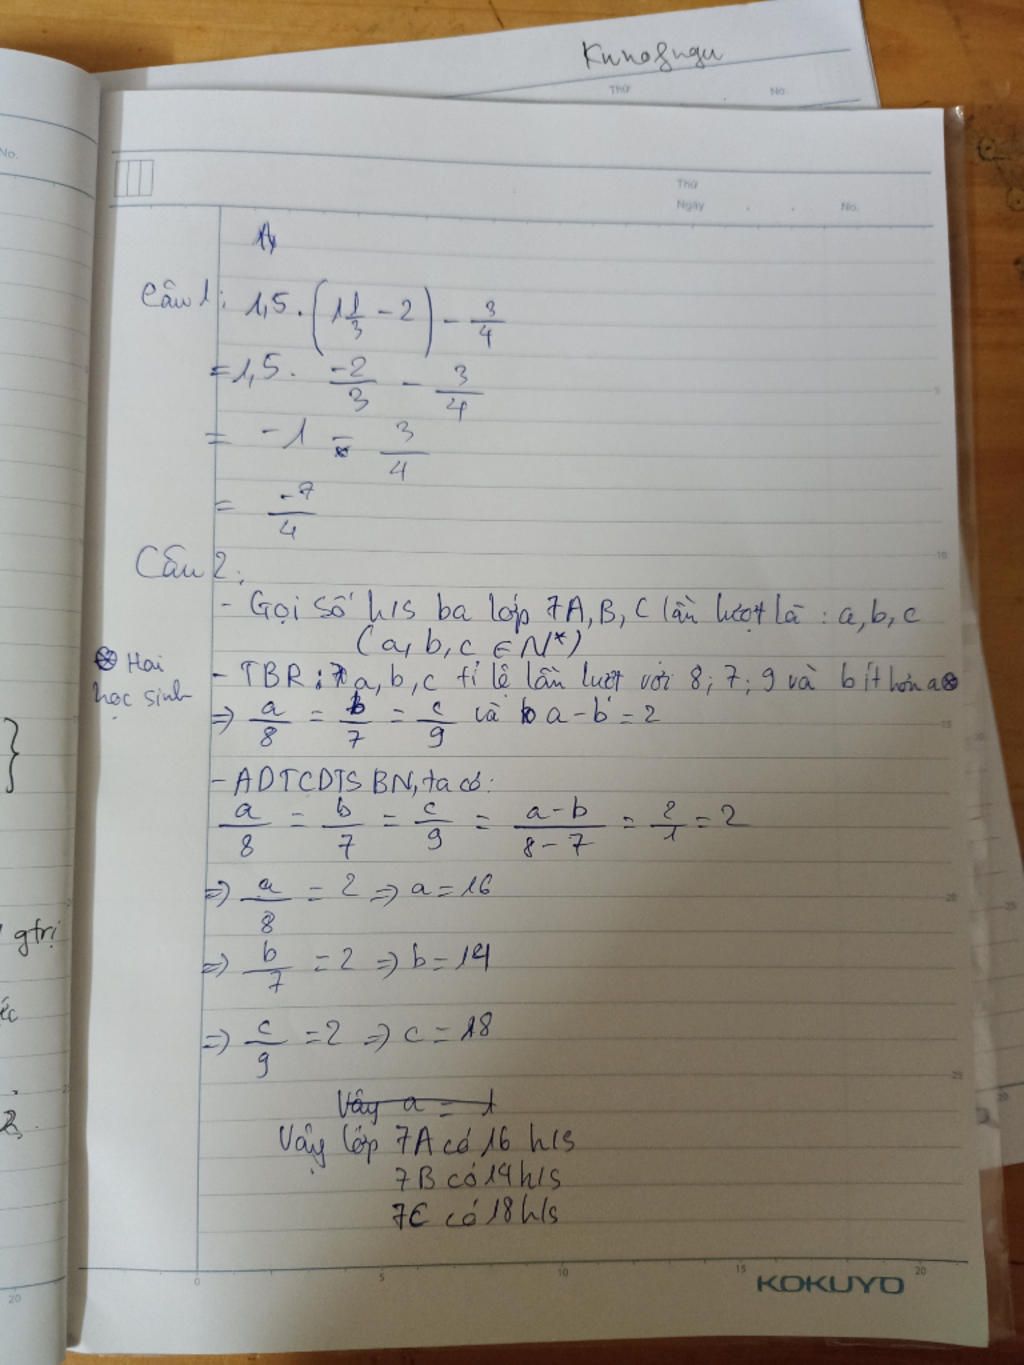 Thứ
No.
No.
Thứ
Ngày
No.
Câu 1: 1,5 . (1 1/3 - 2) - 3/4
= 1,5 . -2/3 - 3/4
= -1 - 3/4
= -7/4
Câu 2:
- Gọi số h/s ba lớp 7A, B, C lần lượt là : a, b, c
(a, b, c ∈ N*)
- TBR : a, b, c tỉ lệ lần lượt với 8; 7; 9 và b ít hơn a ⊗
⊗ Hai
học sinh
⇒ a/8 = b/7 = c/9 và a - b = 2
- ADTCDTSBN, ta có:
a/8 = b/7 = c/9 = a-b/8-7 = 2/1 = 2
⇒ a/8 = 2 ⇒ a = 16
⇒ b/7 = 2 ⇒ b = 14
⇒ c/9 = 2 ⇒ c = 18
Vậy a = 1
Vậy lớp 7A có 16 h/s
7B có 14 h/s
7C có 18 h/s
0 5 10 15 20
KOKUYO
gtrị
20